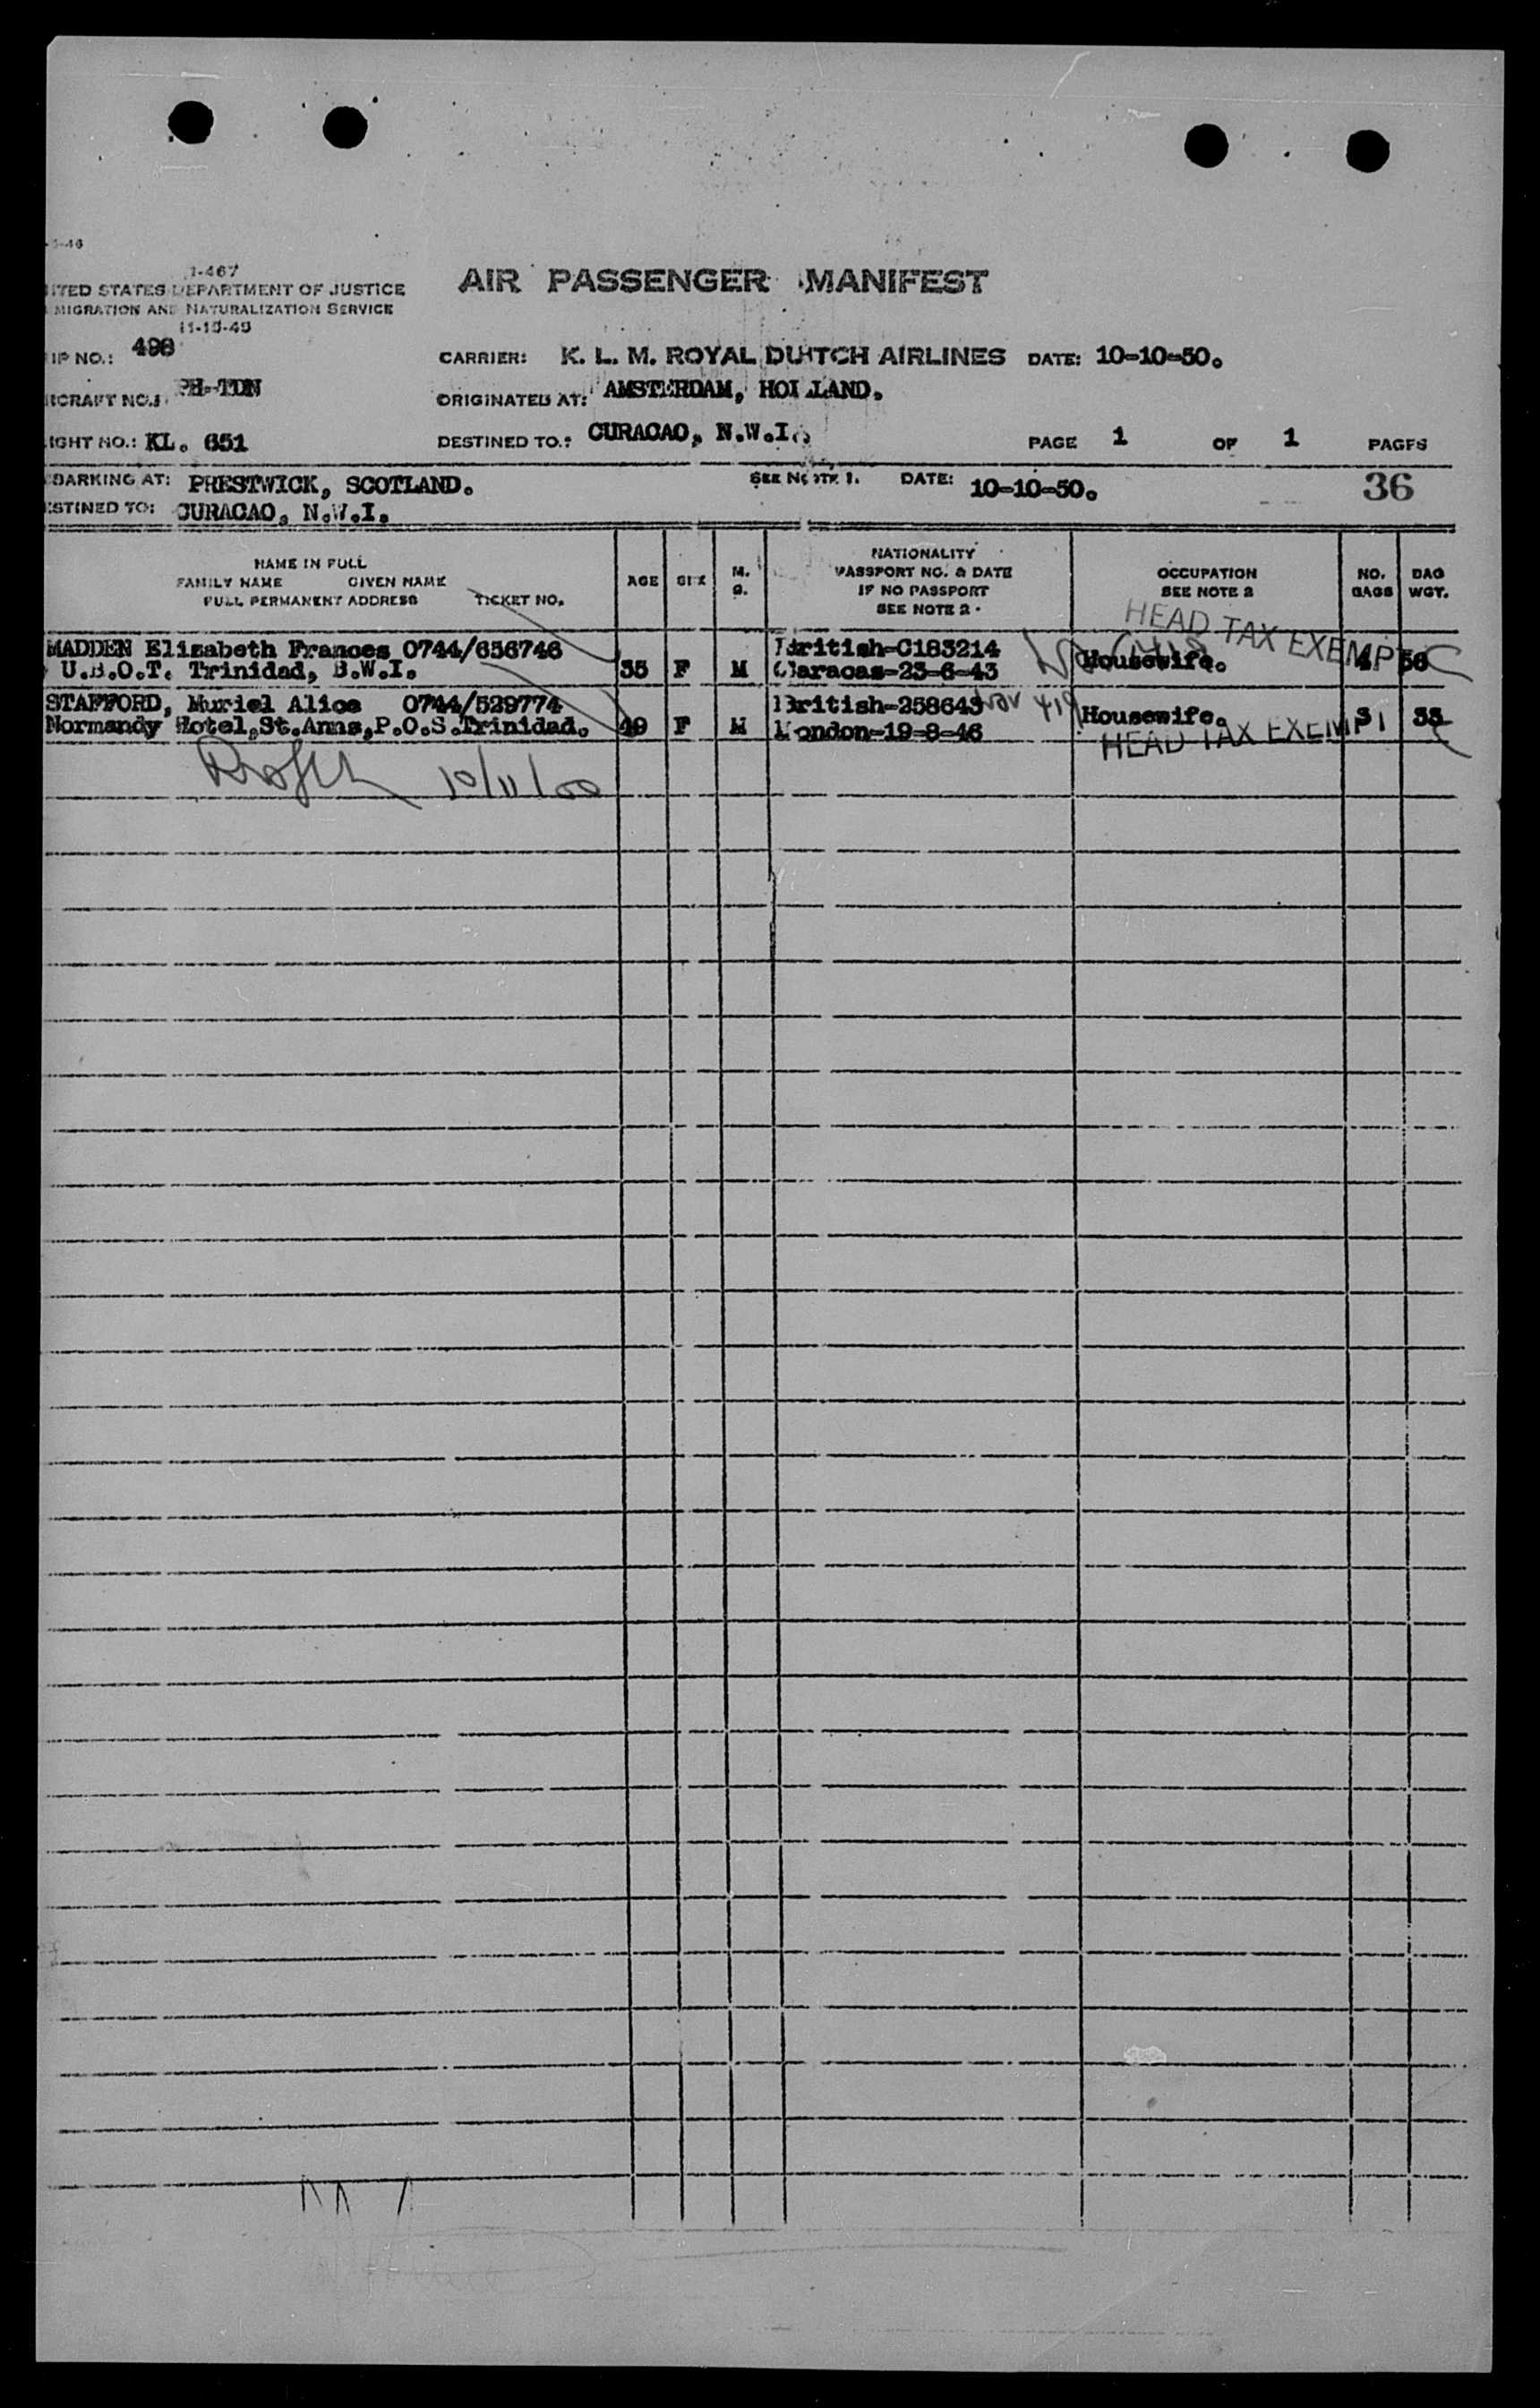 -46
I-467
ITED STATES DEPARTMENT OF JUSTICE
MIGRATION AND NATURALIZATION SERVICE
11-15-49
AIR PASSENGER MANIFEST
IP NO.: 498
CARRIER: K. L. M. ROYAL DUTCH AIRLINES DATE: 10-10-50.
RCRAFT NO.: PH-TDN
ORIGINATED AT: AMSTERDAM, HOLLAND.
IGHT NO.: KL. 651
DESTINED TO.: CURACAO, N.W.I.
PAGE 1 OF 1 PAGES
BARKING AT: PRESTWICK, SCOTLAND.
SEE NOTE 1. DATE: 10-10-50.
36
STINED TO: CURACAO, N.W.I.
NAME IN FULL
FAMILY NAME GIVEN NAME
FULL PERMANENT ADDRESS TICKET NO.
AGE
SEX
M.
S.
NATIONALITY
PASSPORT NO. & DATE
IF NO PASSPORT
SEE NOTE 2.
OCCUPATION
SEE NOTE 2
NO.
BAGS
BAG
WGT.
HEAD TAX EXEMPT
MADDEN Elizabeth Frances 0744/656746
U.B.O.T. Trinidad, B.W.I.
35 F M
British-C183214
Caracas-23-6-43
Housewife.
4 56
STAFFORD, Muriel Alice 0744/529774
Normandy Hotel,St.Anns,P.O.S.Trinidad.
49 F M
British-258643
London-19-8-46
Housewife.
3 33
HEAD TAX EXEMPT
10/11/50